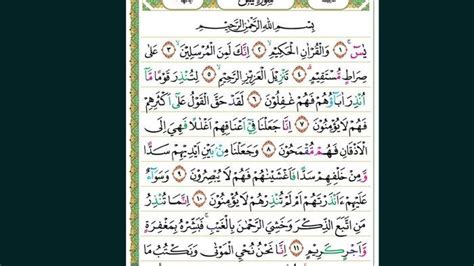 بِسْمِ اللهِ الرَّحْمٰنِ الرَّحِيْمِ
يٰسٓ ۚ ١ وَالْقُرْاٰنِ الْحَكِيْمِ ۙ ٢ اِنَّكَ لَمِنَ الْمُرْسَلِيْنَ ۙ ٣ عَلٰى
صِرَاطٍ مُّسْتَقِيْمٍ ۗ ٤ تَنْزِيْلَ الْعَزِيْزِ الرَّحِيْمِ ۙ ٥ لِتُنْذِرَ قَوْمًا مَّآ
اُنْذِرَ اٰبَاۤؤُهُمْ فَهُمْ غٰفِلُوْنَ ٦ لَقَدْ حَقَّ الْقَوْلُ عَلٰٓى اَكْثَرِهِمْ
فَهُمْ لَا يُؤْمِنُوْنَ ٧ اِنَّا جَعَلْنَا فِيْٓ اَعْنَاقِهِمْ اَغْلٰلًا فَهِيَ اِلَى
الْاَذْقَانِ فَهُمْ مُّقْمَحُوْنَ ٨ وَجَعَلْنَا مِنْۢ بَيْنِ اَيْدِيْهِمْ سَدًّا
وَّمِنْ خَلْفِهِمْ سَدًّا فَاَغْشَيْنٰهُمْ فَهُمْ لَا يُبْصِرُوْنَ ٩ وَسَوَاۤءٌ
عَلَيْهِمْ ءَاَنْذَرْتَهُمْ اَمْ لَمْ تُنْذِرْهُمْ لَا يُؤْمِنُوْنَ ١٠ اِنَّمَا تُنْذِرُ
مَنِ اتَّبَعَ الذِّكْرَ وَخَشِيَ الرَّحْمٰنَ بِالْغَيْبِ ۚ فَبَشِّرْهُ بِمَغْفِرَةٍ
وَّاَجْرٍ كَرِيْمٍ ١١ اِنَّا نَحْنُ نُحْيِ الْمَوْتٰى وَنَكْتُبُ مَا